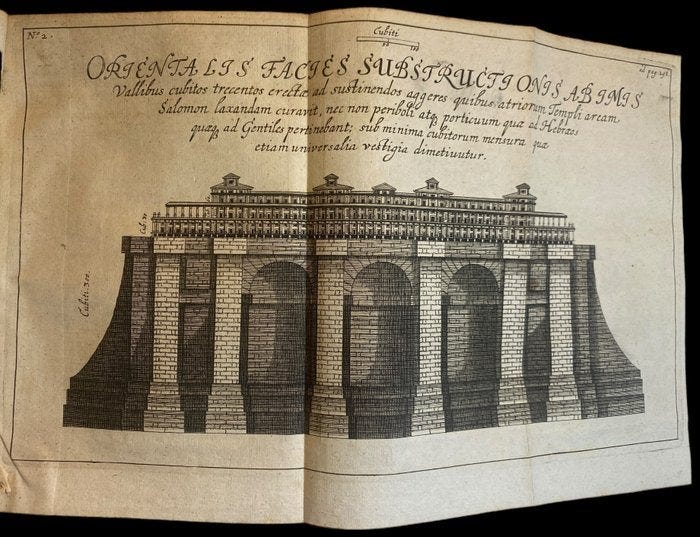 No 2.
Cubiti
50 100
ad pag. 291
ORIENTALIS FACIES SUBSTRUCTIONIS AB IMIS
Vallibus cubitos trecentos erectæ ad sustinendos aggeres quibus atriorum Templi aream
Salomon laxandam curavit, nec non periboli atq; porticuum quæ ad Hebræos
quæq; ad Gentiles pertinebant; sub minima cubitorum mensura quæ
etiam universalia vestigia dimetiuutur.
Cub.
Cubiti 300.